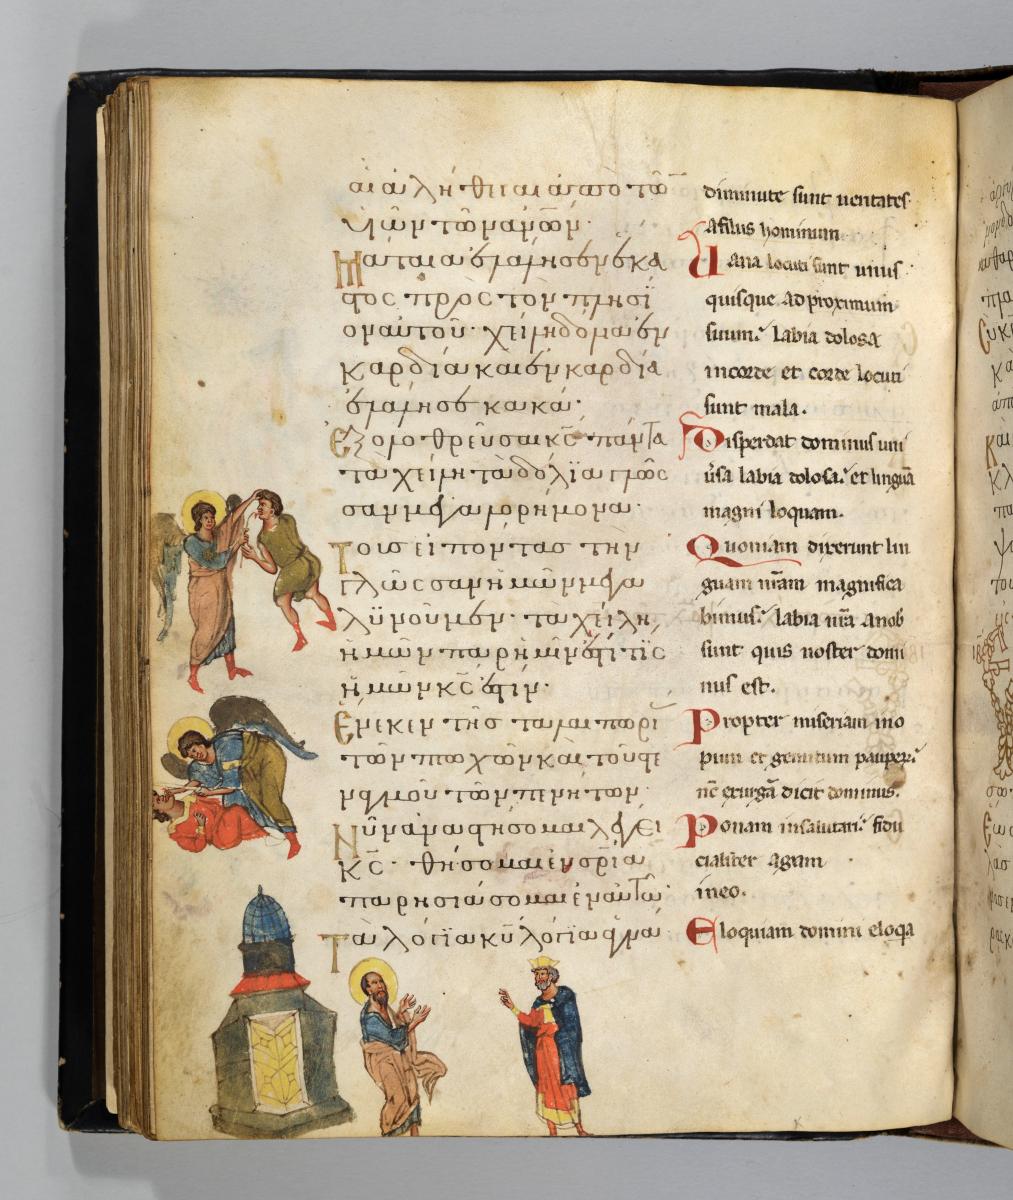 αι αλήθειαι ἀπὸ τῶ
υἱῶν τῶν ἀνων·
Μάταια ἐλάλησεν ἕκα
στος πρὸς τὸν πλησί
ον αὐτοῦ· χείλη δόλια ἐν
καρδία καὶ ἐν καρδία
ἐλάλησε κακά·
Ἐξολοθρεύσαι κς πάντα
τὰ χείλη τὰ δόλϊα γλῶσ
σαν μεγαλορήμονα·
Τοὺς εἰπόντας τὴν
γλῶσσαν ἡμῶν μεγα
λϋνοῦμεν· τὰ χείλη
ἡμῶν παρ ἡμῖν ἐστι τίς
ἡμῶν κς ἐστιν·
Ἕνεκεν τῆς ταλαιπωρί
τῶν πτωχῶν καὶ τοῦ στε
ναγμοῦ τῶν πενήτων·
Νῦν ἀναστήσομαι λέγει
κς· θήσομαι ἐν σρία
παρησιάσομαι ἐν αὐτῶ·
Τὰ λόγια κυ λόγια ἁγνά·
diminute sunt ueritates
Afilius hominum
Uana locuti sunt unus
quisque Ad proximum
suum: labia dolosa
incorde et corde locuti
sunt mala.
Disperdat dominus uni
u'sa labia dolosa: et linguā
magni loquam.
Quoniam dixerunt lin
guam nr̄am magnifica
bimus: labia nr̄a Anob
sunt quis noster domi
nus est.
Propter miseriam ino
pum et gemitum pauper:
nc̄ exurgā dicit dominus.
Ponam insalutari: fidu
cialiter Agam
ineo.
Eloquiam domini eloqa